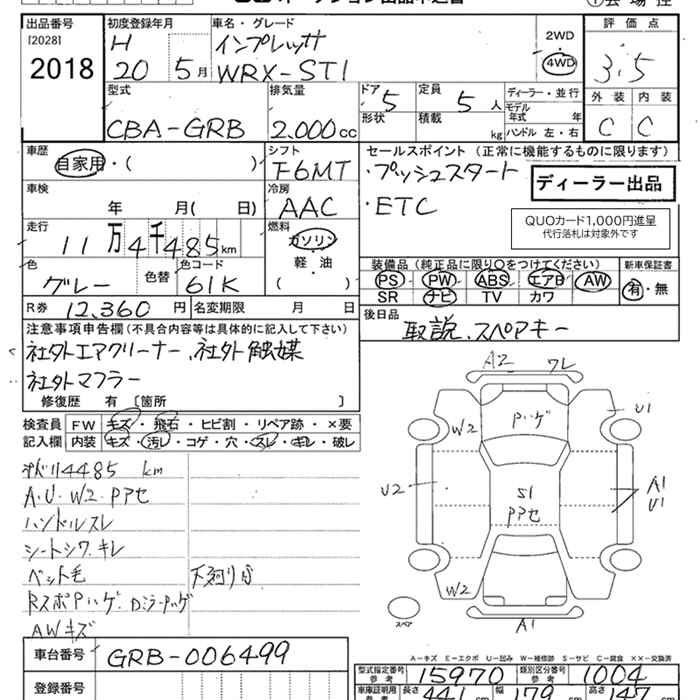 出品番号 初度登録年月 車名・グレード 評価点
[2028] H インプレッサ 2WD
2018 20 5月 WRX-STI 4WD 3.5
外装 内装
C C
型式 排気量 ドア 定員 ディーラー・並行
CBA-GRB 2.000cc 5 5人 モデル年式 年
形状 積載 kg ハンドル 左・右
車歴 シフト セールスポイント (正常に機能するものに限ります)
自家用・( ) F6MT ・プッシュスタート
ディーラー出品
車検 冷房 ・ETC
年 月( 日) AAC
QUOカード1,000円進呈
代行落札は対象外です
走行 燃料
11万4千485km ガソリン
軽・油
( )
色 色替 色コード
グレー 61K
装備品 (純正品に限り○をつけてください) 新車保証書
PS PW ABS エアB AW 有・無
SR ナビ TV カワ
R券 12,360円 名変期限 月 日
後日品 取説、スペアキー
注意事項申告欄 (不具合内容等は具体的に記入して下さい)
社外エアクリーナー、社外触媒
社外マフラー
修復歴 有 [箇所 ]
検査員 FW キズ・飛石・ヒビ割・リペア跡・×要
記入欄 内装 キズ・汚レ・コゲ・穴・スレ・キレ・破レ
114485 km
A.U.W2.Pアセ
ハンドルスレ
シートシワ.キレ
ペット毛
RスポPハゲ.DミラーPハゲ
AWキズ
A2 ワレ
Pハゲ
U1
W2
U2
S1
Pアセ
A1
U1
W2
スペア
A1
A-キズ E-エクボ U-凹み W-補修跡 S-サビ C-腐食 ××-交換済
車台番号 GRB-006499
型式指定番号 参考 15970 類別区分番号 参考 1004
登録番号
車庫証明用 参考 長さ 441 幅 179 高さ 147